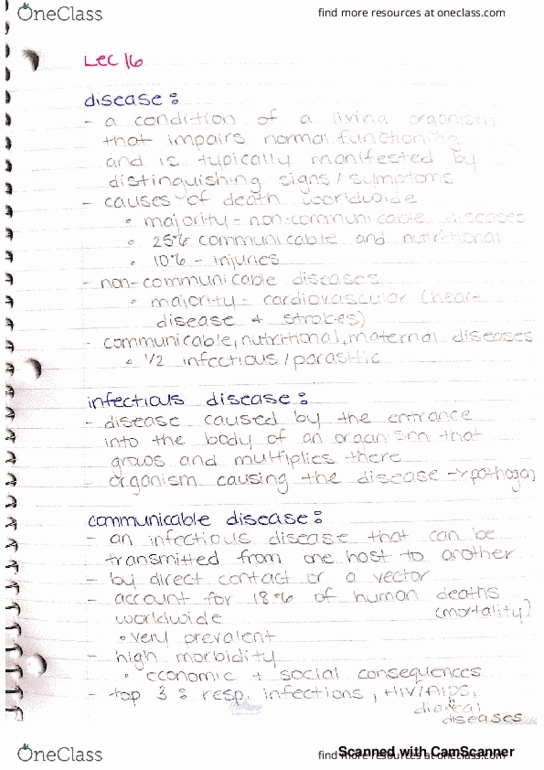 OneClass
find more resources at oneclass.com
Lec 16
disease:
- a condition of a living organism
that impairs normal functioning
and is typically manifested by
distinguishing signs/symptoms
- causes of death worldwide
• majority - non-communicable diseases
• 25% communicable and nutritional
• 10% - injuries
- non-communicable diseases
• majority - cardiovascular (heart
disease + strokes)
- communicable, nutritional, maternal diseases
• 1/2 infectious/parasitic
infectious disease:
- disease caused by the entrance
into the body of an organism that
grows and multiplies there
- organism causing the disease → pathogen
communicable disease:
- an infectious disease that can be
transmitted from one host to another
- by direct contact or a vector
- account for 18% of human deaths
worldwide (mortality)
• very prevalent
- high morbidity
• economic + social consequences
- top 3: resp. infections, HIV/AIDS,
diarreal
diseases
OneClass
find more resources at oneclass.com
Scanned with CamScanner